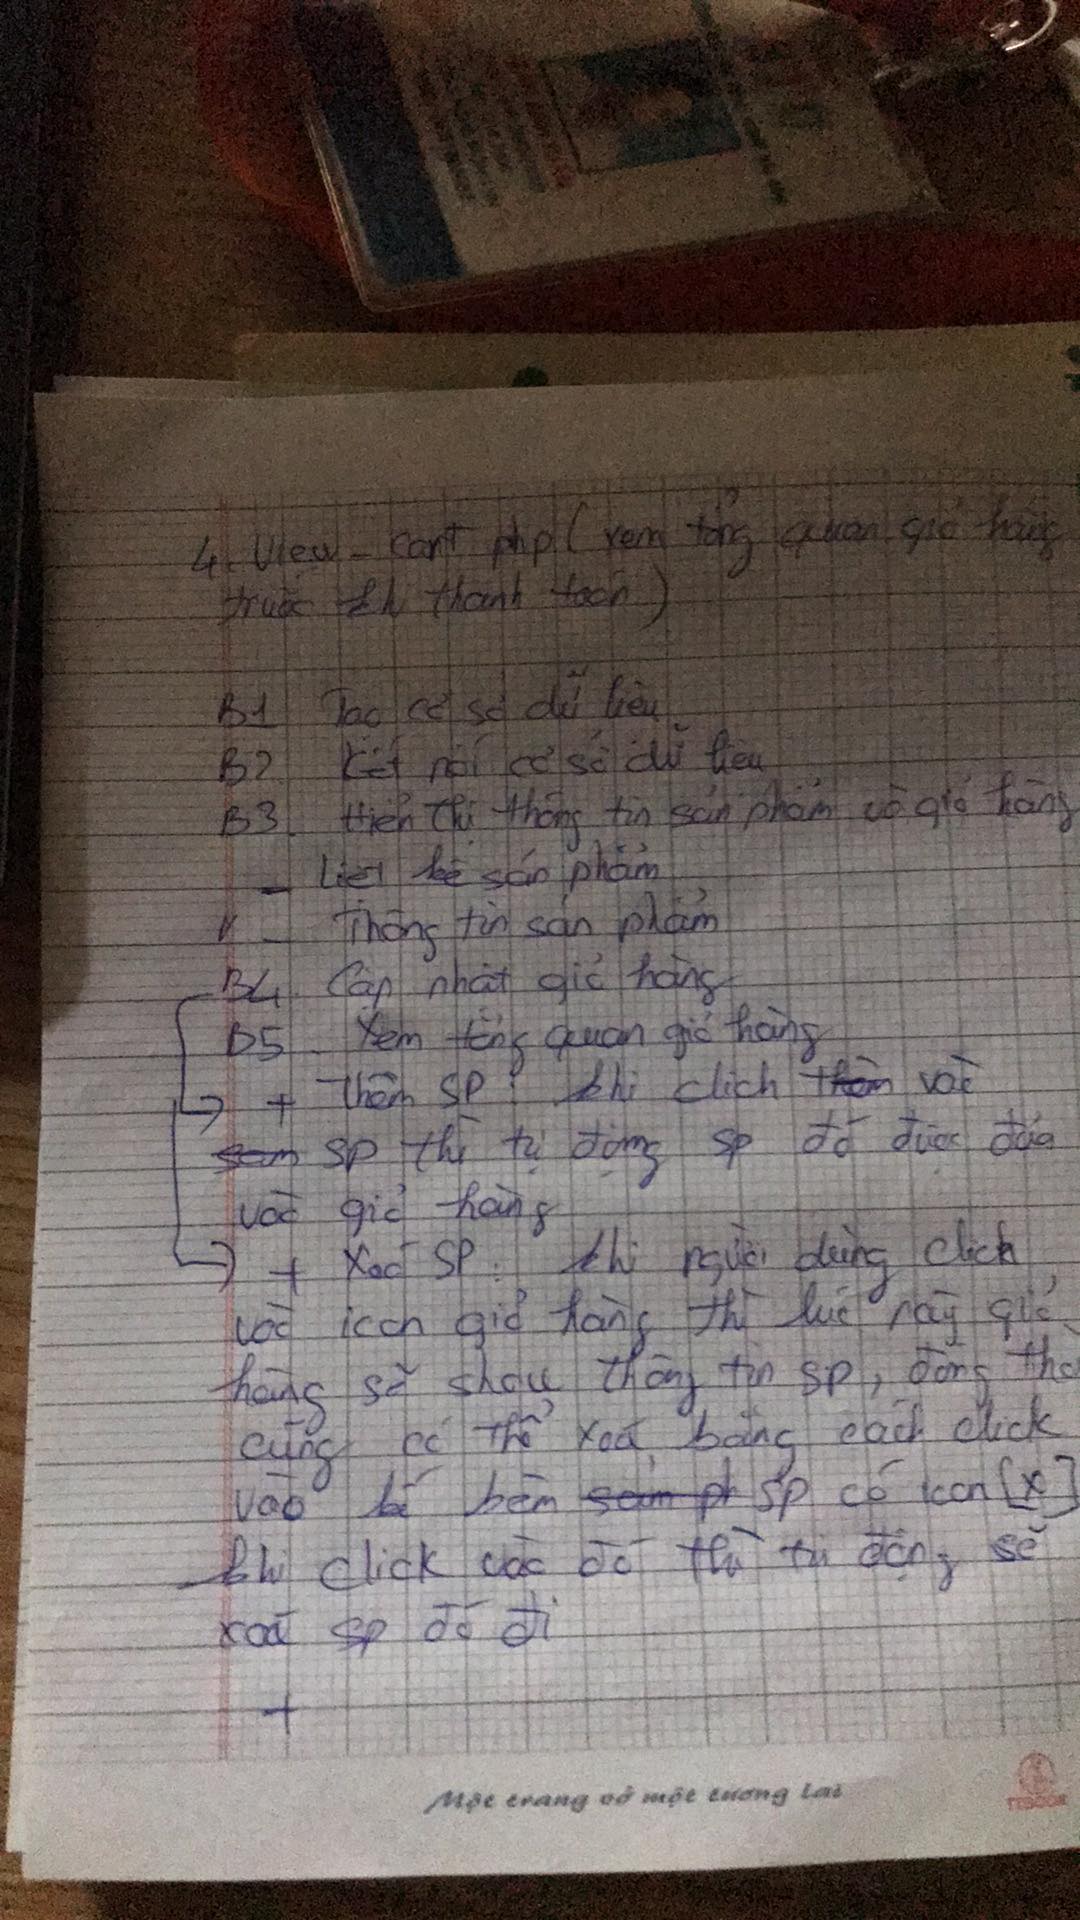 4. View - cart php ( xem tổng quan giỏ hàng
trước khi thanh toán )
B1 Tạo cơ sở dữ liệu
B2 Kết nối cơ sở dữ liệu
B3. Hiển thị thông tin sản phẩm và giỏ hàng
- Liệt kê sản phẩm
- Thông tin sản phẩm
B4. Cập nhật giỏ hàng
B5. Xem tổng quan giỏ hàng
+ Thêm SP: khi click vào
SP thì tự động SP đó được đưa
vào giỏ hàng
+ Xoá SP: khi người dùng click
vào icon giỏ hàng thì lúc này giỏ
hàng sẽ show thông tin SP, đồng thờ
cũng có thể xoá bằng cách click
vào kế bên SP có icon [x]
khi click vào đó thì tự động sẽ
xoá SP đó đi
+
Một trang vở một tương lai